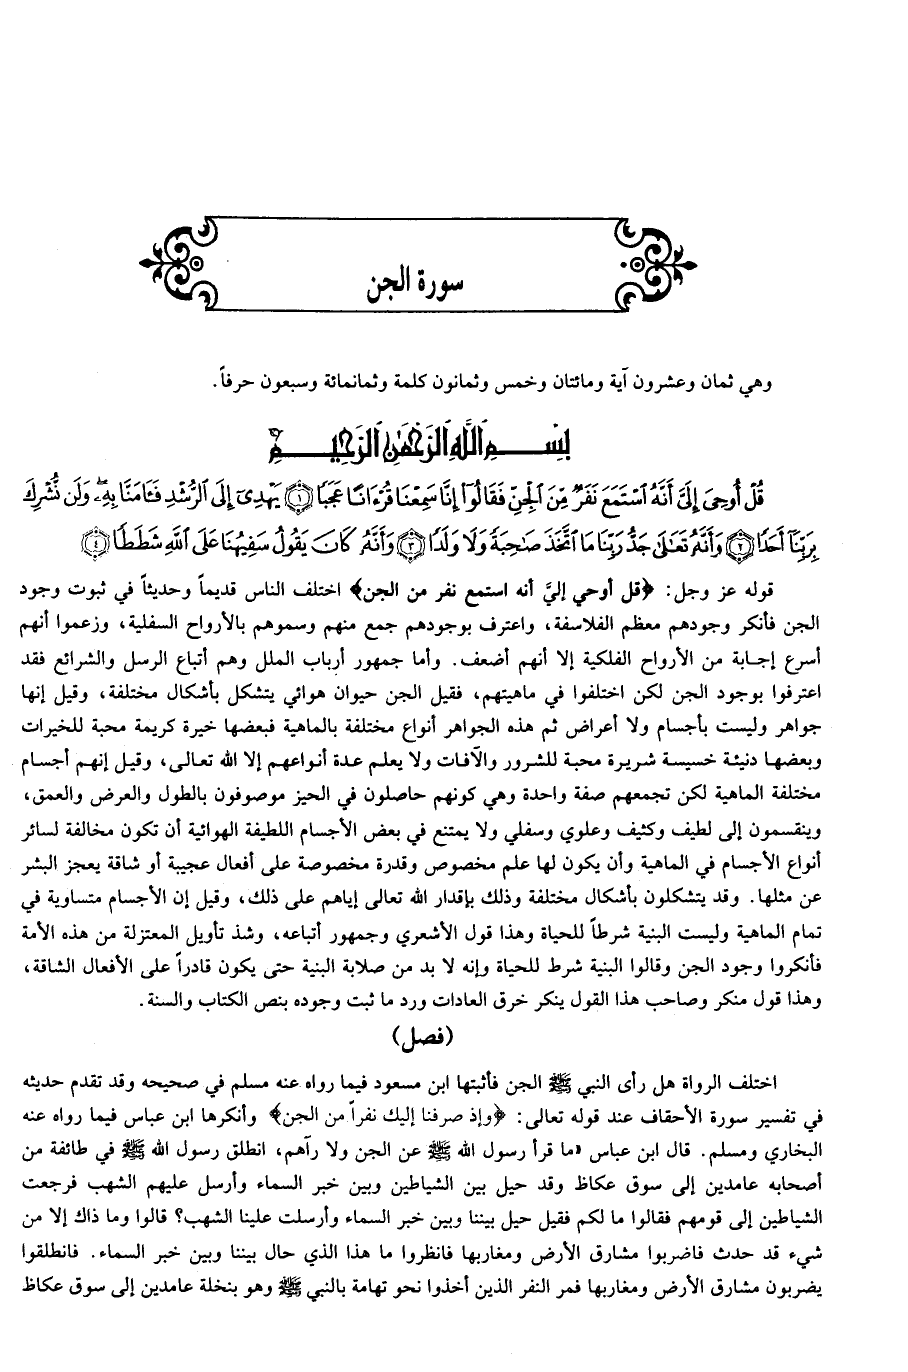 سورة الجن
وهي ثمان وعشرون آية ومائتان وخمس وثمانون كلمة وثمانمائة وسبعون حرفاً.
بِسْمِ اللَّهِ الرَّحْمَٰنِ الرَّحِيمِ
قُلْ أُوحِىَ إِلَىَّ أَنَّهُ ٱسْتَمَعَ نَفَرٌ مِّنَ ٱلْجِنِّ فَقَالُوٓا۟ إِنَّا سَمِعْنَا قُرْءَانًا عَجَبًا ﴿١﴾ يَهْدِىٓ إِلَى ٱلرُّشْدِ فَـَٔامَنَّا بِهِۦ ۖ وَلَن نُّشْرِكَ
بِرَبِّنَآ أَحَدًا ﴿٢﴾ وَأَنَّهُۥ تَعَٰلَىٰ جَدُّ رَبِّنَا مَا ٱتَّخَذَ صَٰحِبَةً وَلَا وَلَدًا ﴿٣﴾ وَأَنَّهُۥ كَانَ يَقُولُ سَفِيهُنَا عَلَى ٱللَّهِ شَطَطًا ﴿٤﴾
قوله عز وجل: ﴿قل أوحي إليَّ أنه استمع نفر من الجن﴾ اختلف الناس قديماً وحديثاً في ثبوت وجود
الجن فأنكر وجودهم معظم الفلاسفة، واعترف بوجودهم جمع منهم وسموهم بالأرواح السفلية، وزعموا أنهم
أسرع إجابة من الأرواح الفلكية إلا أنهم أضعف. وأما جمهور أرباب الملل وهم أتباع الرسل والشرائع فقد
اعترفوا بوجود الجن لكن اختلفوا في ماهيتهم، فقيل الجن حيوان هوائي يتشكل بأشكال مختلفة، وقيل إنها
جواهر وليست بأجسام ولا أعراض ثم هذه الجواهر أنواع مختلفة بالماهية فبعضها خيرة كريمة محبة للخيرات
وبعضها دنيئة خسيسة شريرة محبة للشرور والآفات ولا يعلم عدة أنواعهم إلا الله تعالى، وقيل إنهم أجسام
مختلفة الماهية لكن تجمعهم صفة واحدة وهي كونهم حاصلون في الحيز موصوفون بالطول والعرض والعمق،
وينقسمون إلى لطيف وكثيف وعلوي وسفلي ولا يمتنع في بعض الأجسام اللطيفة الهوائية أن تكون مخالفة لسائر
أنواع الأجسام في الماهية وأن يكون لها علم مخصوص وقدرة مخصوصة على أفعال عجيبة أو شاقة يعجز البشر
عن مثلها. وقد يتشكلون بأشكال مختلفة وذلك بإقدار الله تعالى إياهم على ذلك، وقيل إن الأجسام متساوية في
تمام الماهية وليست البنية شرطاً للحياة وهذا قول الأشعري وجمهور أتباعه، وشذ تأويل المعتزلة من هذه الأمة
فأنكروا وجود الجن وقالوا البنية شرط للحياة وإنه لا بد من صلابة البنية حتى يكون قادراً على الأفعال الشاقة،
وهذا قول منكر وصاحب هذا القول ينكر خرق العادات ورد ما ثبت وجوده بنص الكتاب والسنة.
(فصل)
اختلف الرواة هل رأى النبي ﷺ الجن فأثبتها ابن مسعود فيما رواه عنه مسلم في صحيحه وقد تقدم حديثه
في تفسير سورة الأحقاف عند قوله تعالى: ﴿وإذ صرفنا إليك نفراً من الجن﴾ وأنكرها ابن عباس فيما رواه عنه
البخاري ومسلم. قال ابن عباس «ما قرأ رسول الله ﷺ عن الجن ولا رآهم، انطلق رسول الله ﷺ في طائفة من
أصحابه عامدين إلى سوق عكاظ وقد حيل بين الشياطين وبين خبر السماء وأرسل عليهم الشهب فرجعت
الشياطين إلى قومهم فقالوا ما لكم فقيل حيل بيننا وبين خبر السماء وأرسلت علينا الشهب؟ قالوا وما ذاك إلا من
شيء قد حدث فاضربوا مشارق الأرض ومغاربها فانظروا ما هذا الذي حال بيننا وبين خبر السماء. فانطلقوا
يضربون مشارق الأرض ومغاربها فمر النفر الذين أخذوا نحو تهامة بالنبي ﷺ وهو بنخلة عامدين إلى سوق عكاظ